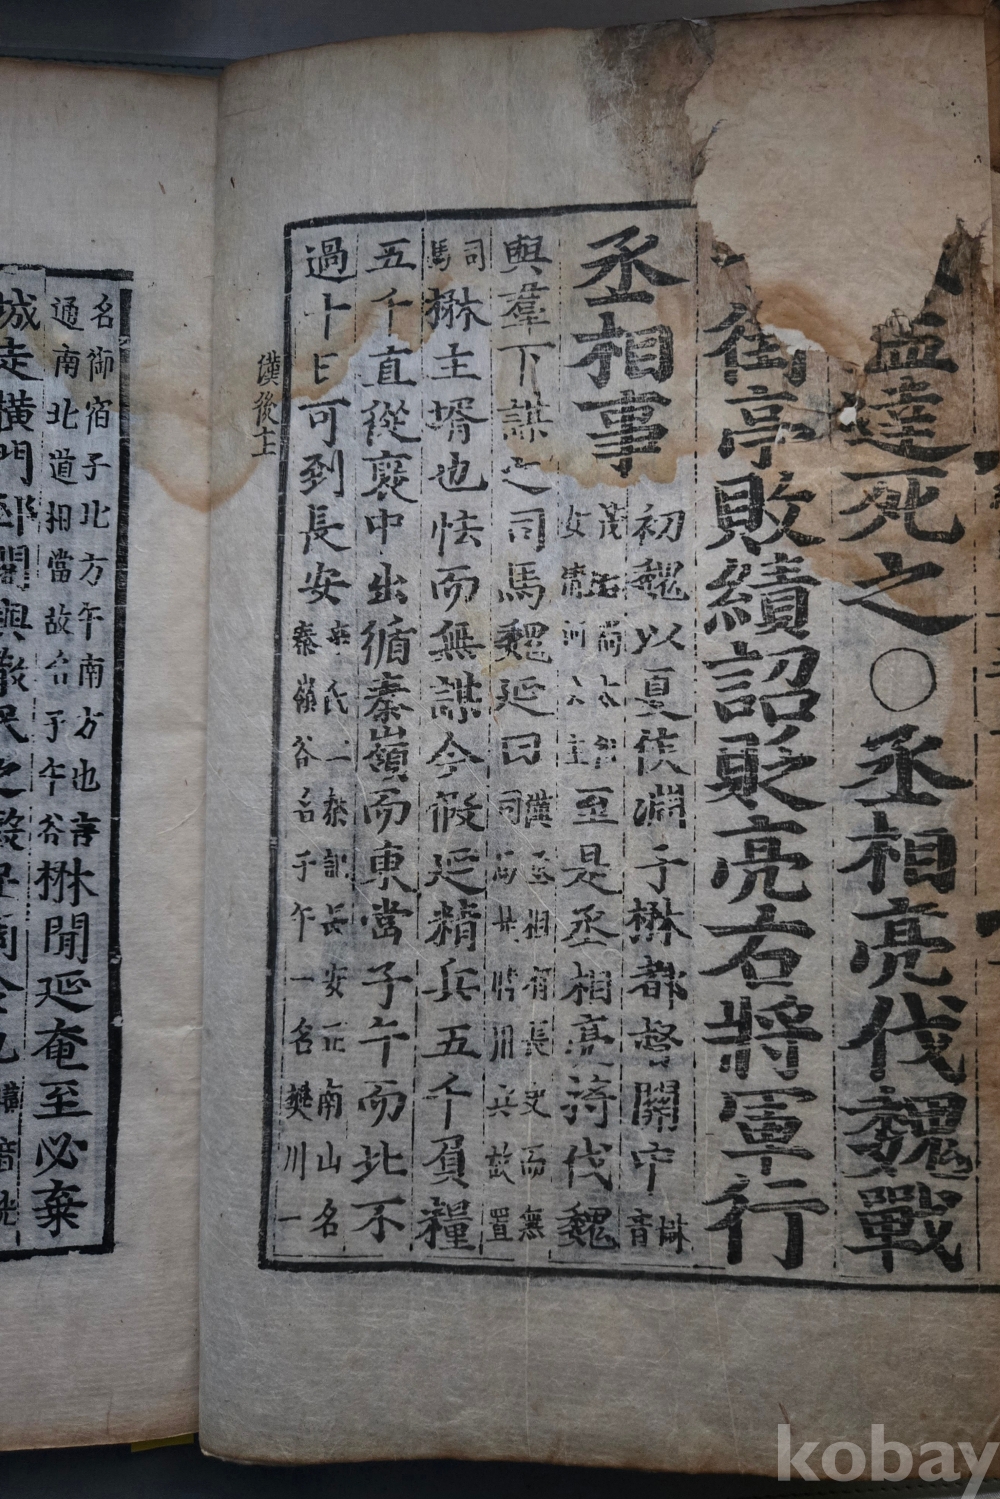 孟達死之○丞相亮伐魏戰
街亭敗績詔貶亮右將軍行
丞相事
初魏以夏侯淵子楙都督關中
楙
音
茂
女清河公主
至是丞相亮將伐魏
與羣下謀之司馬魏延曰
漢丞相有長史而無
司馬
兵故置
司
馬
楙主壻也怯而無謀今假延精兵五千負糧
五千直從褒中出循秦嶺而東當子午而北不
過十日可到長安
長安正南山名
秦嶺谷名子午一名樊川一
漢後主
名御宿子北方午南方也言
通南北道相當故名子午谷
楙聞延奄至必棄
城走橫門邸閣與散民之
橫音光
kobay